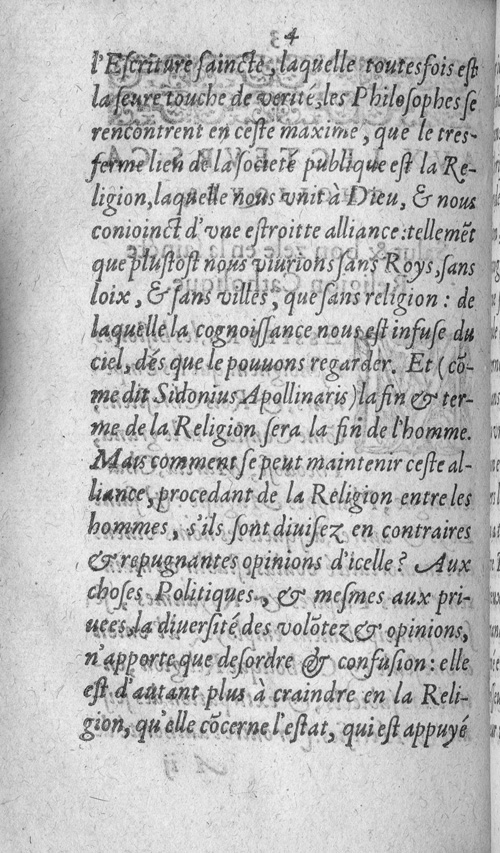 4
l'Eſcriture ſaincte, laquelle toutesfois eſt
la ſeure touche de verité, les Philoſophes ſe
rencontrent en ceſte maxime, que le tres-
ferme lien de la ſocieté publique eſt la Re-
ligion, laquelle nous vnit à Dieu, & nous
conioinct d'vne eſtroitte alliance: tellemẽt
que pluſtoſt nous viurions ſans Roys, ſans
loix, & ſans villes, que ſans religion: de
laquelle la cognoiſſance nous eſt infuſe du
ciel, dés que le pouuons regarder. Et (cõ-
me dit Sidonius Apollinaris) la fin & ter-
me de la Religion ſera la fin de l'homme.
Mais comment ſe peut maintenir ceſte al-
liance, procedant de la Religion entre les
hommes, s'ils ſont diuiſez en contraires
& repugnantes opinions d'icelle? Aux
choſes Politiques, & meſmes aux pri-
uees, la diuerſité des volõtez & opinions,
n'apporte que deſordre & confuſion: elle
eſt d'autant plus à craindre en la Reli-
gion, qu'elle cõcerne l'eſtat, qui eſt appuyé